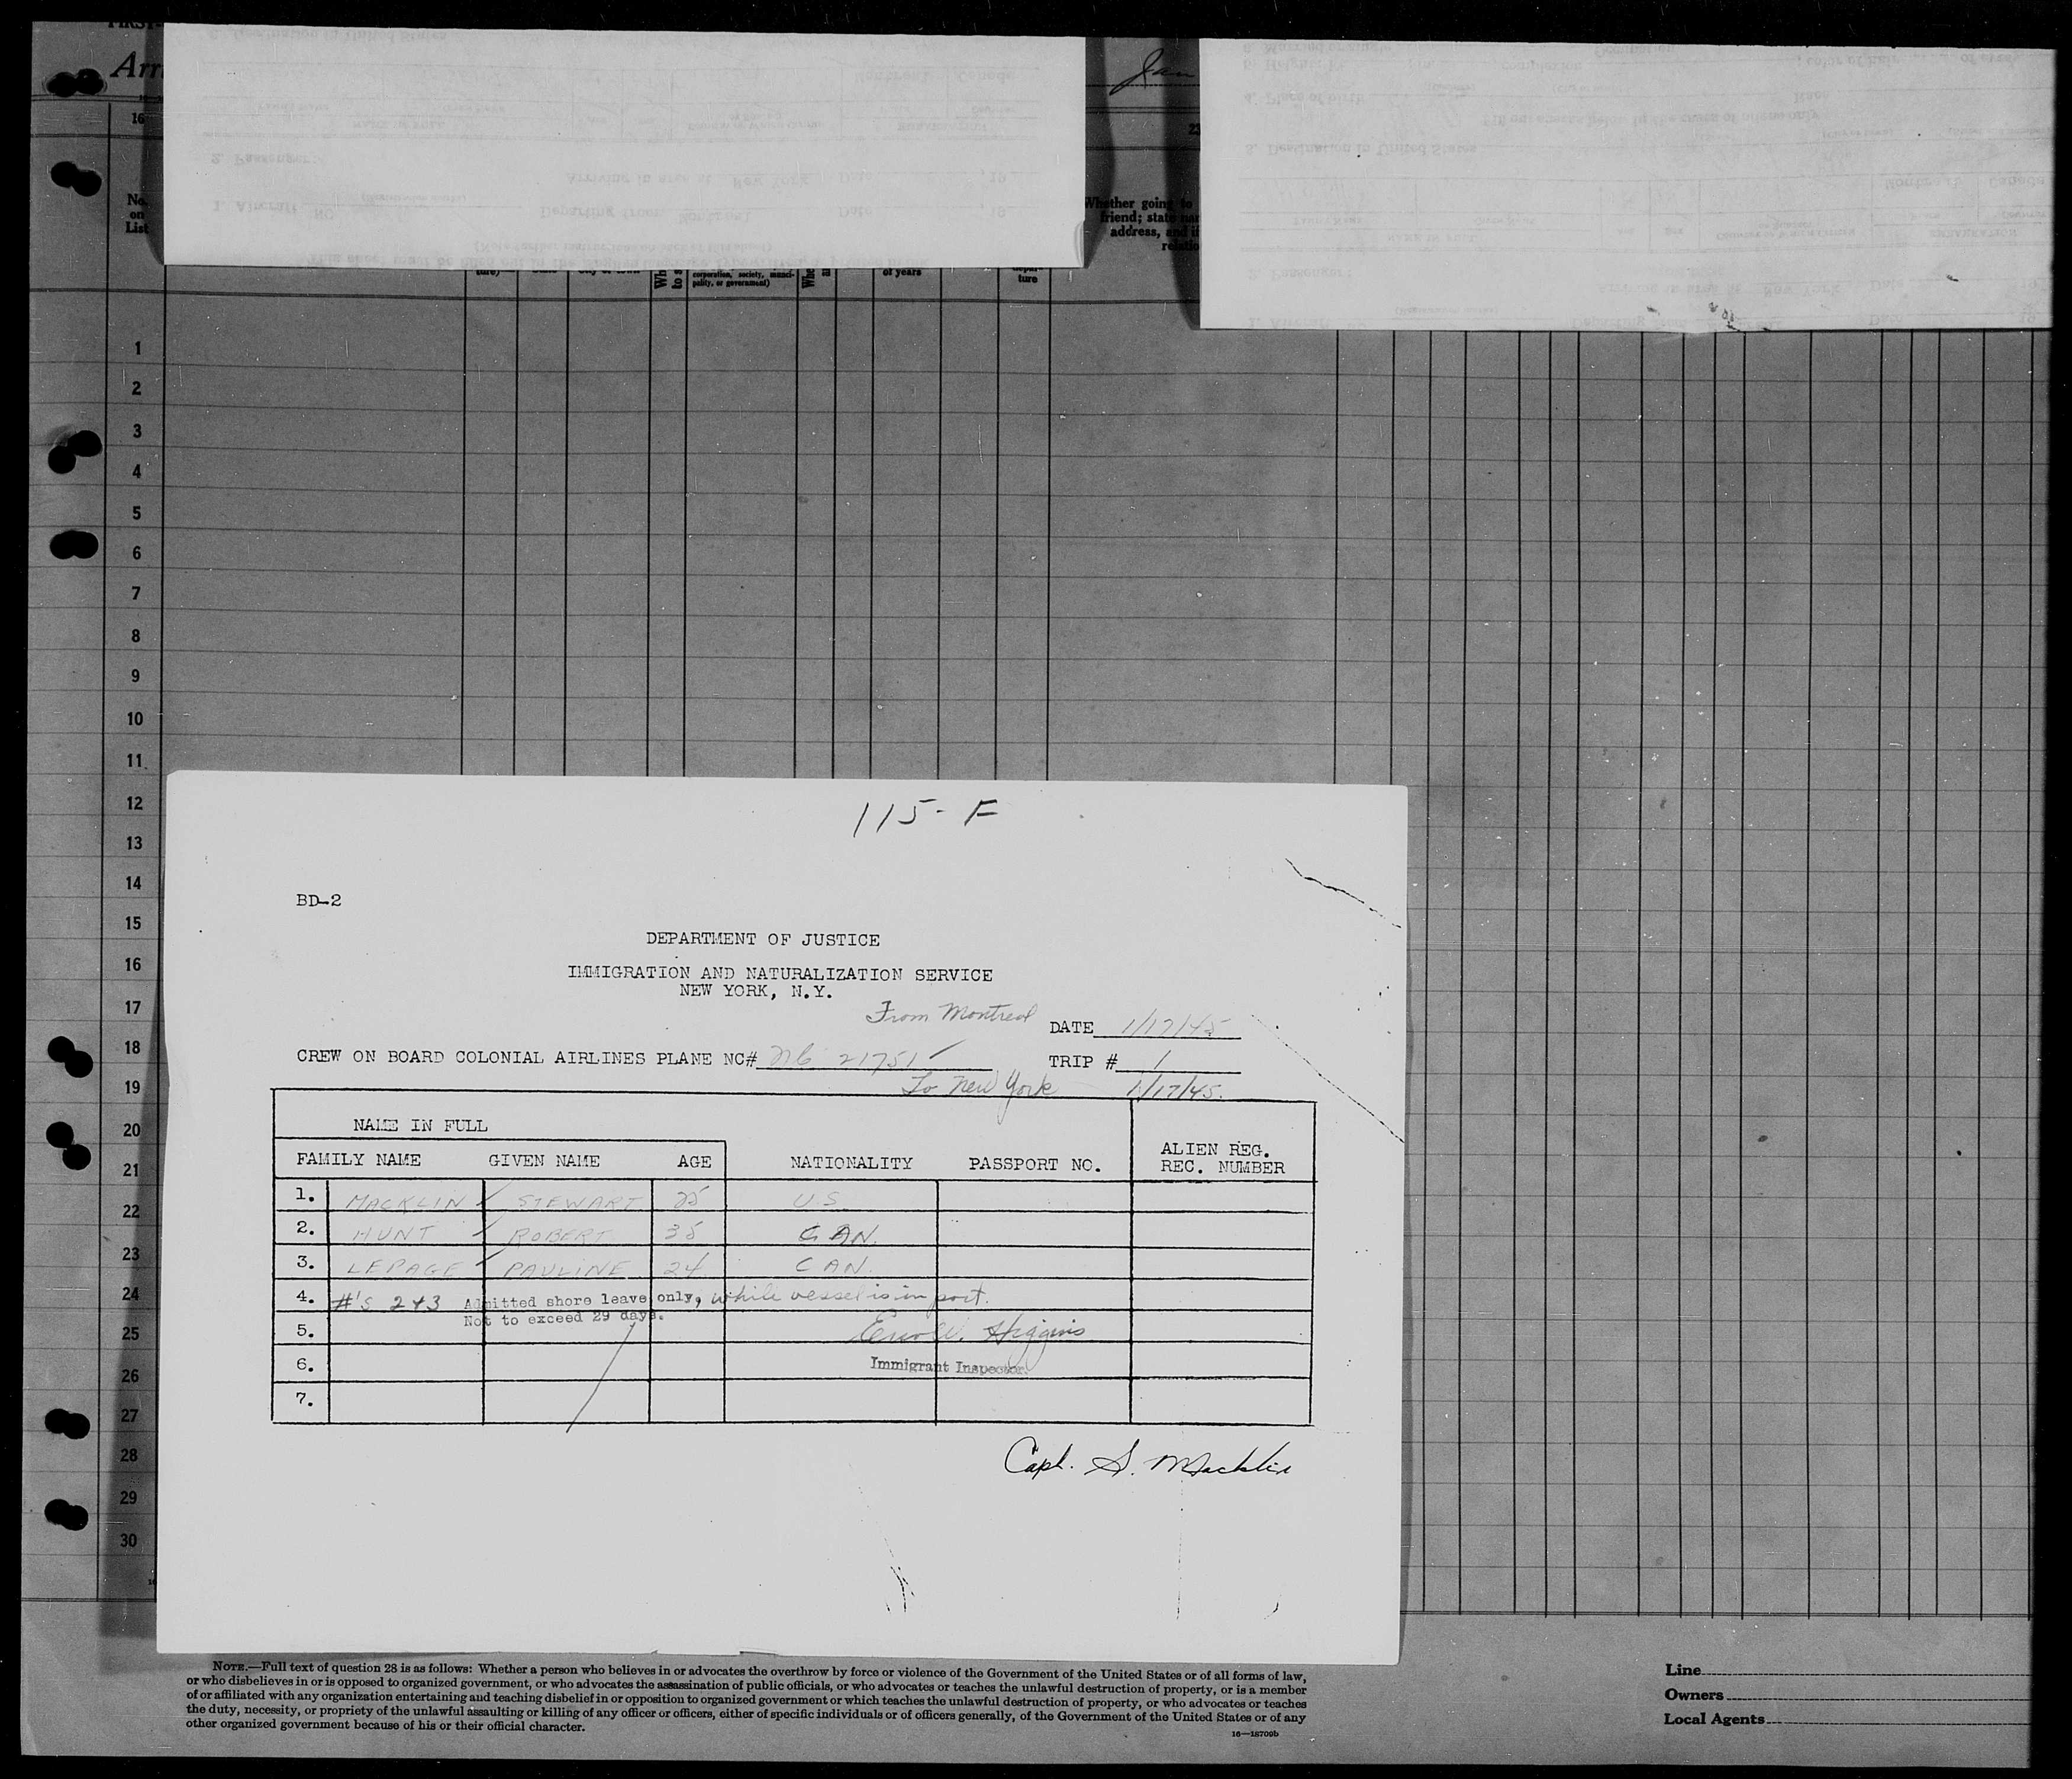 Arr
Jan
16
23
No.
on
List
Whether going to
friend; state
address, and if
relatio
ture)
corporation, society, munici-
pality, or government)
of years
depar-
ture
1
2
3
4
5
6
7
8
9
10
11
12
13
14
15
16
17
18
19
20
21
22
23
24
25
26
27
28
29
30
115-F
BD-2
DEPARTMENT OF JUSTICE
IMMIGRATION AND NATURALIZATION SERVICE
NEW YORK, N.Y.
From Montreal
DATE 1/17/45
CREW ON BOARD COLONIAL AIRLINES PLANE NC# NC 21751
TRIP # 1
To New York 1/17/45.
NAME IN FULL
FAMILY NAME GIVEN NAME AGE NATIONALITY PASSPORT NO. ALIEN REG.
REC. NUMBER
1. MACKLIN STEWART 25 U.S.
2. HUNT ROBERT 35 CAN.
3. LEPAGE PAULINE 24 CAN.
4. #'s 2+3 Admitted shore leave only, while vessel is in port.
Not to exceed 29 days.
5. Higgins
6. Immigrant Inspector.
7.
Capt. S. Macklin
NOTE.—Full text of question 28 is as follows: Whether a person who believes in or advocates the overthrow by force or violence of the Government of the United States or of all forms of law,
or who disbelieves in or is opposed to organized government, or who advocates the assassination of public officials, or who advocates or teaches the unlawful destruction of property, or is a member
of or affiliated with any organization entertaining and teaching disbelief in or opposition to organized government or which teaches the unlawful destruction of property, or who advocates or teaches
the duty, necessity, or propriety of the unlawful assaulting or killing of any officer or officers, either of specific individuals or of officers generally, of the Government of the United States or of any
other organized government because of his or their official character.
16—18709b
Line
Owners
Local Agents